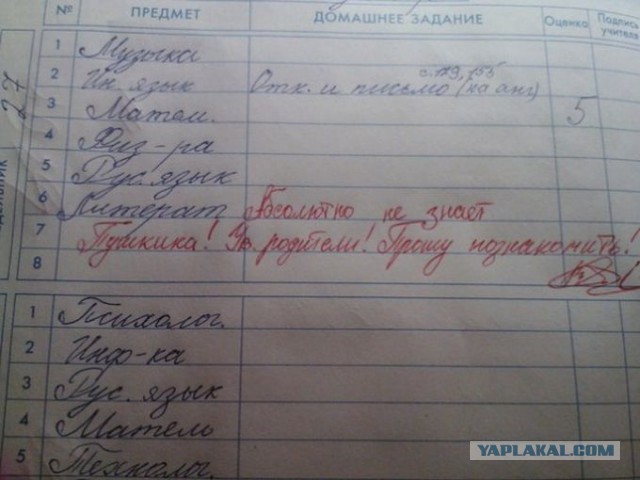 № ПРЕДМЕТ ДОМАШНЕЕ ЗАДАНИЕ Оценка Подпись учителя
27
1 Музыка
2 Ин. язык Отк. и письмо (на анг) с. 129, 155
3 Матем. 5
4 Физ-ра
5 Рус. язык
6 Литерат Абсолютно не знает
7 Пушкина! Ув. родители! Прошу познакомить!
8
1 Психолог.
2 Инф-ка
3 Рус. язык
4 Матем
5 Технолог.
YAPLAKAL.COM